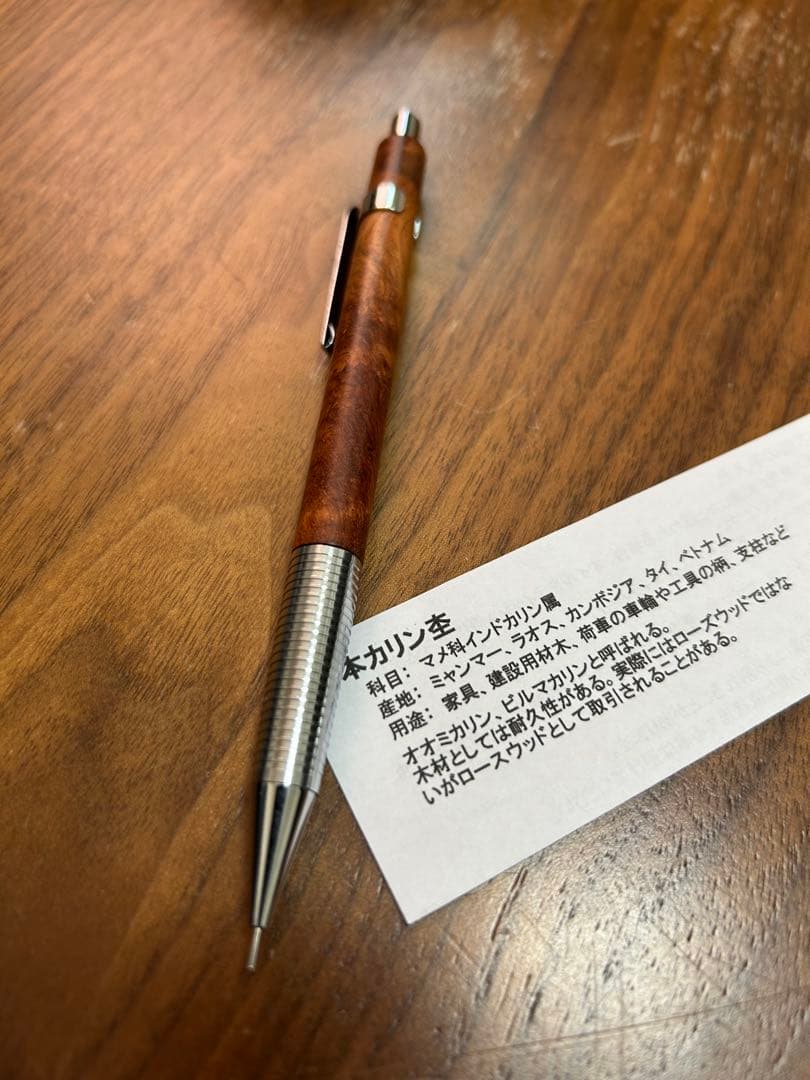 本カリン杢
科目： マメ科インドカリン属
産地： ミャンマー、ラオス、カンボジア、タイ、ベトナム
用途： 家具、建設用材木、荷車の車輪や工具の柄、支柱など
オオミカリン、ビルマカリンと呼ばれる。
木材としては耐久性がある。実際にはローズウッドではな
いがローズウッドとして取引されることがある。